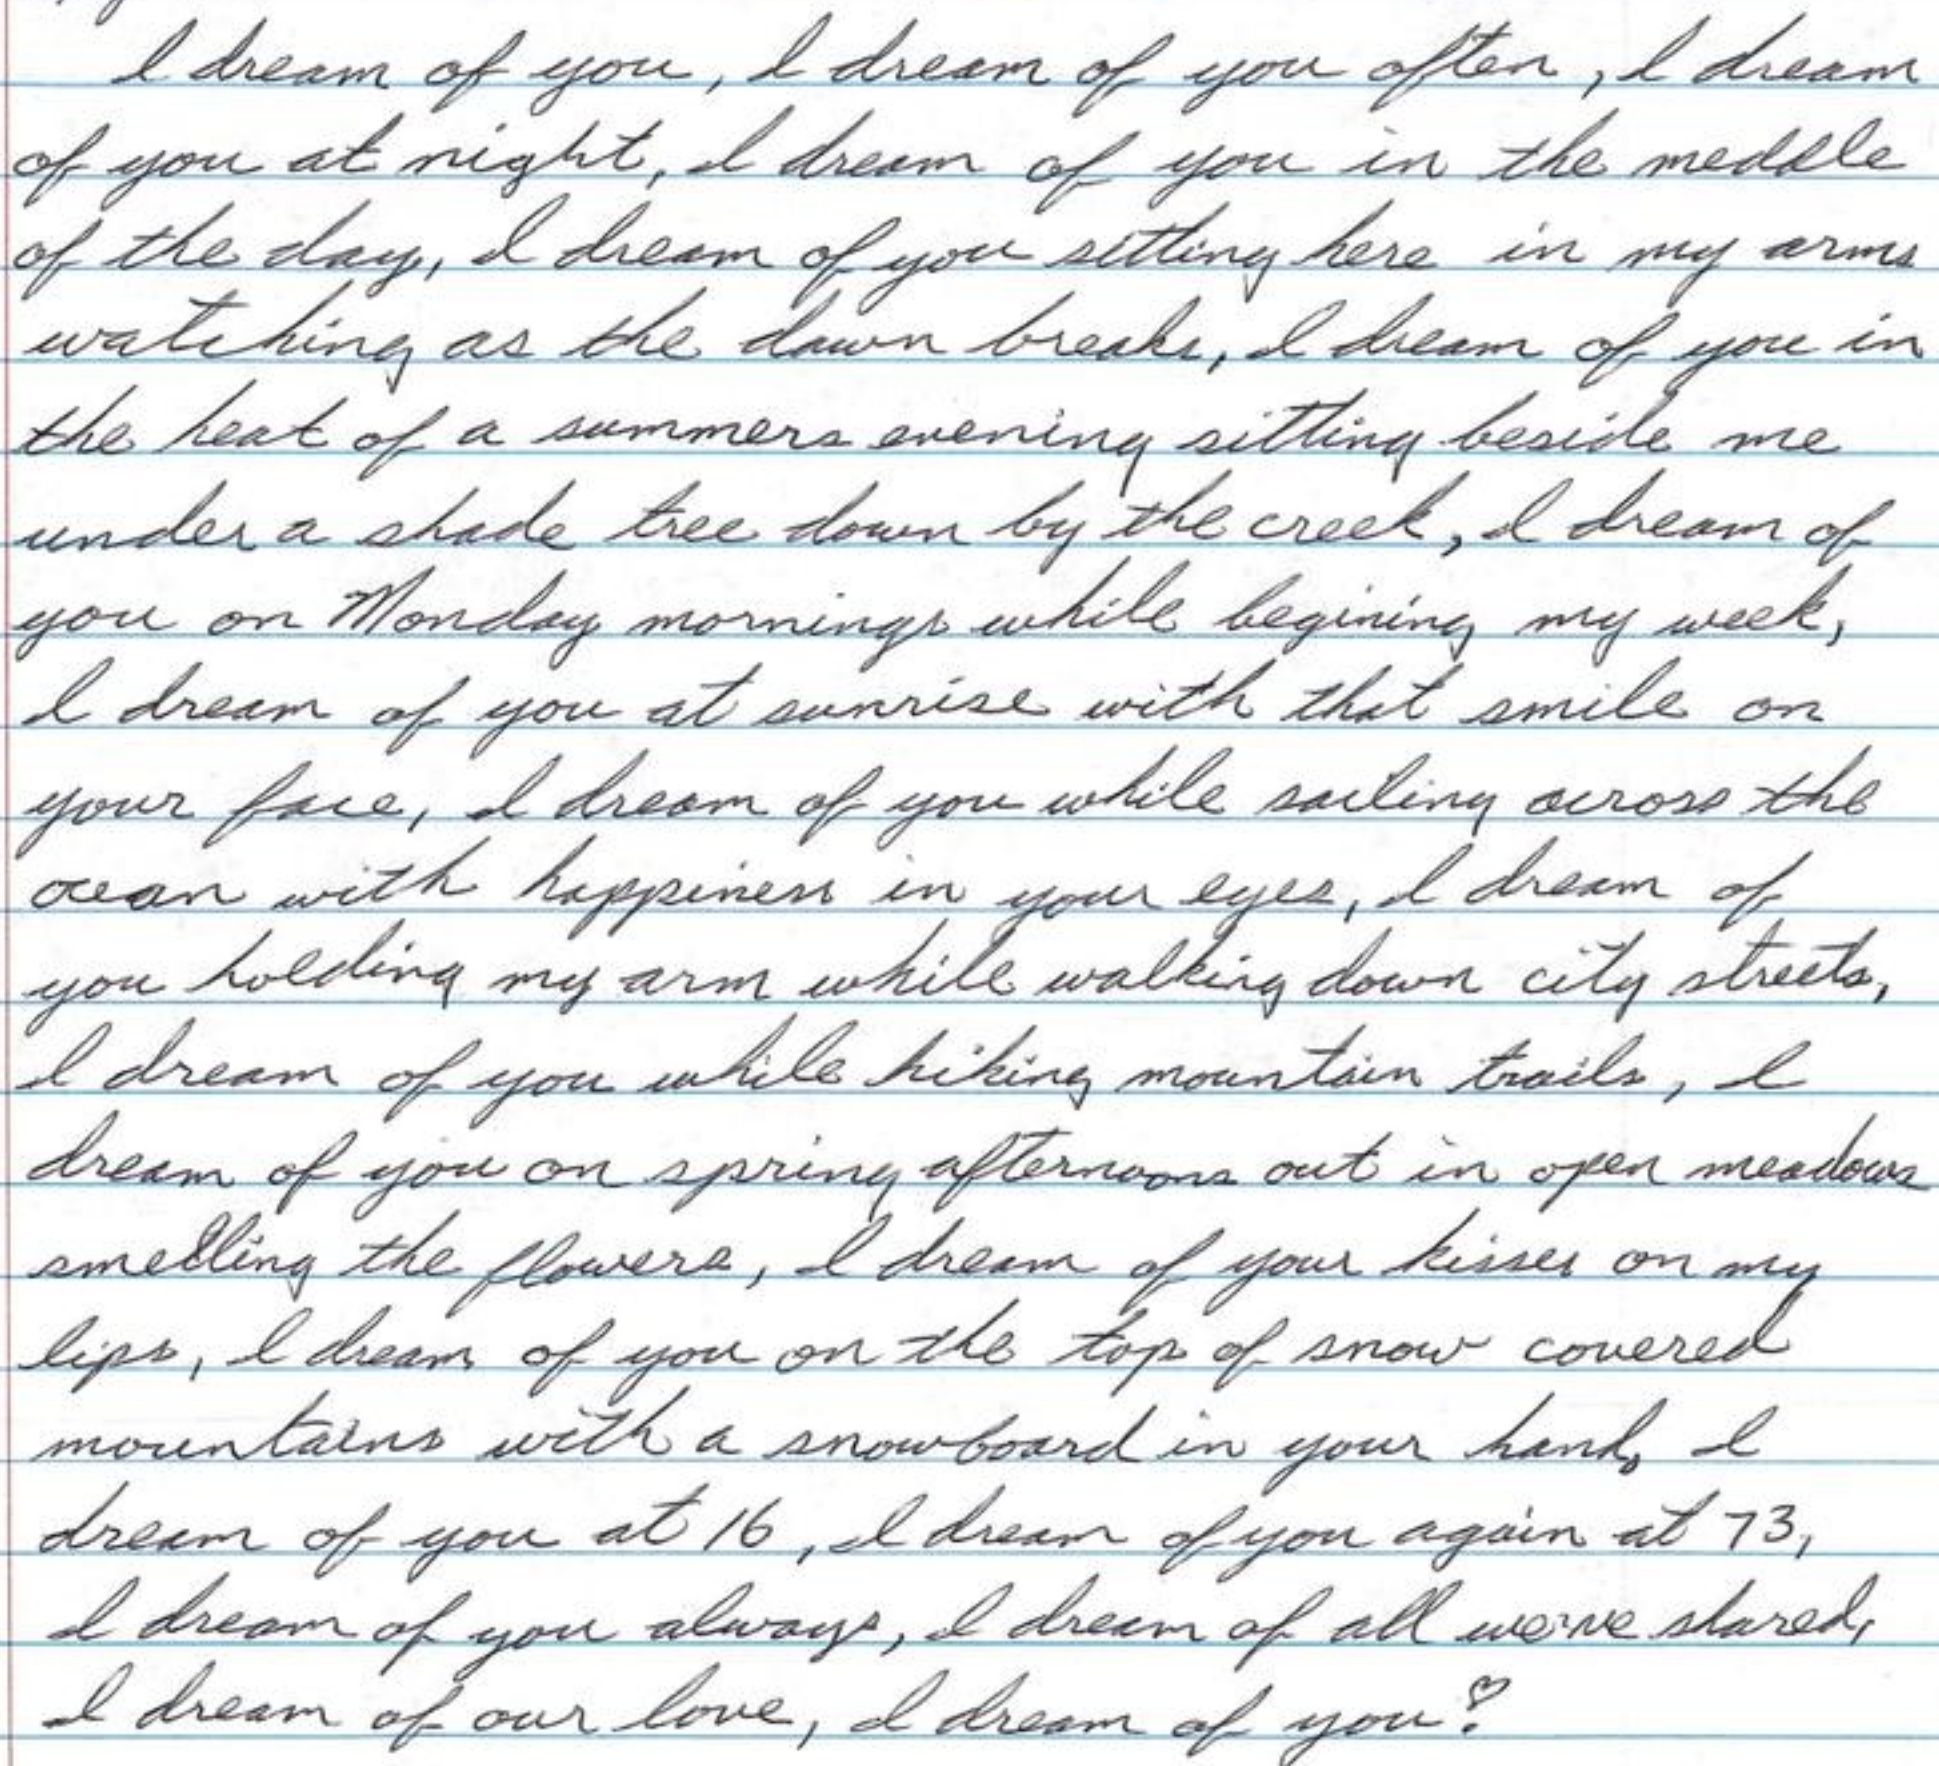 I dream of you, I dream of you often, I dream
of you at night, I dream of you in the meddle
of the day, I dream of you sitting here in my arms
watching as the dawn breaks, I dream of you in
the heat of a summers evening sitting beside me
under a shade tree down by the creek, I dream of
you on Monday mornings while begining my week,
I dream of you at sunrise with that smile on
your face, I dream of you while sailing across the
ocean with happiness in your eyes, I dream of
you holding my arm while walking down city streets,
I dream of you while hiking mountain trails, I
dream of you on spring afternoons out in open meadows
smelling the flowers, I dream of your kisses on my
lips, I dream of you on the top of snow covered
mountains with a snowboard in your hand, I
dream of you at 16, I dream of you again at 73,
I dream of you always, I dream of all we've shared,
I dream of our love, I dream of you